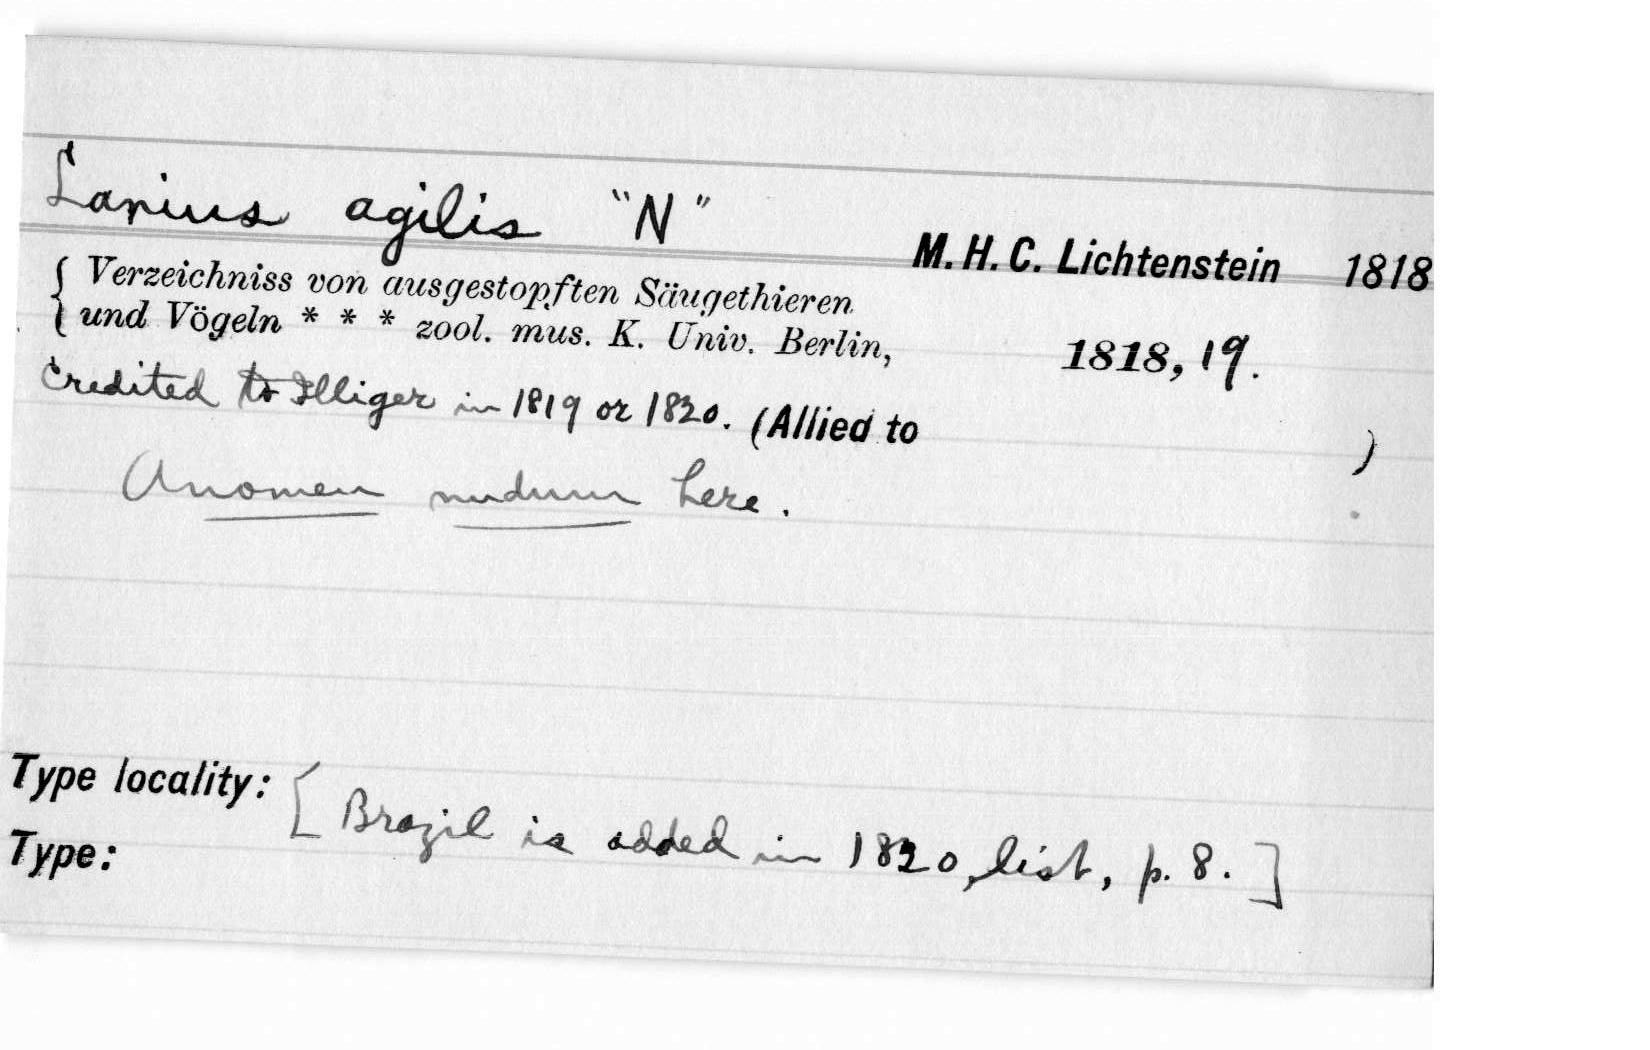 Lanius agilis "N"
M. H. C. Lichtenstein 1818
{ Verzeichniss von ausgestopften Säugethieren
{ und Vögeln * * * zool. mus. K. Univ. Berlin, 1818, 19.
Credited to Illiger in 1819 or 1820. (Allied to )
A nomen nudum here.
Type locality:
[Brazil is added in 1820, list, p. 8.]
Type: